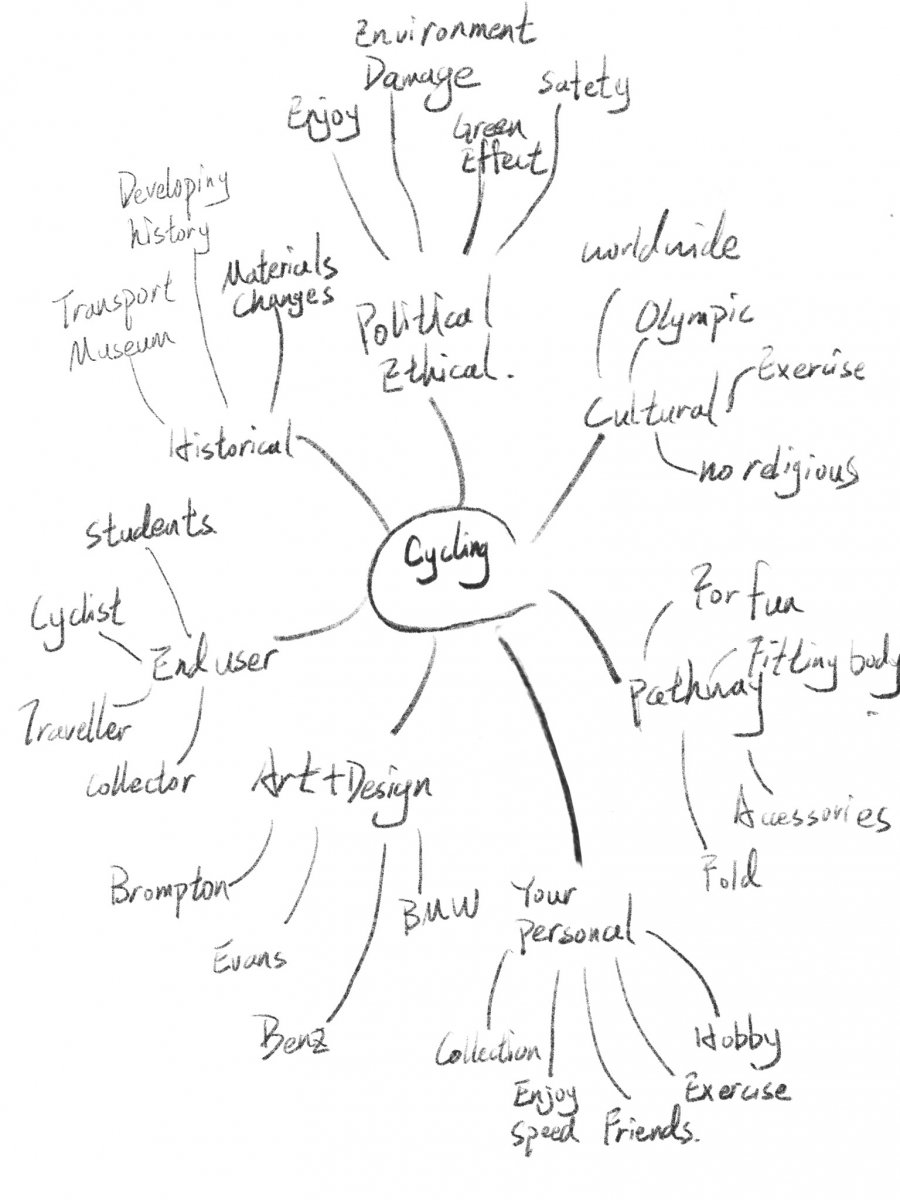 Environment
Damage
Enjoy
Green
Effect
Safety
Political
Ethical.
Developing
history
Transport
Museum
Materials
Changes
Historical
worldwide
Olympic
Exercise
Cultural
no religious
Cycling
students
Cyclist
End user
Traveller
Collector
For fun
Fitting body
Pathway
Accessories
Fold
Art+Design
Brompton
Evans
Benz
BMW
Your
Personal
Collection
Enjoy
Speed
Friends.
Exercise
Hobby